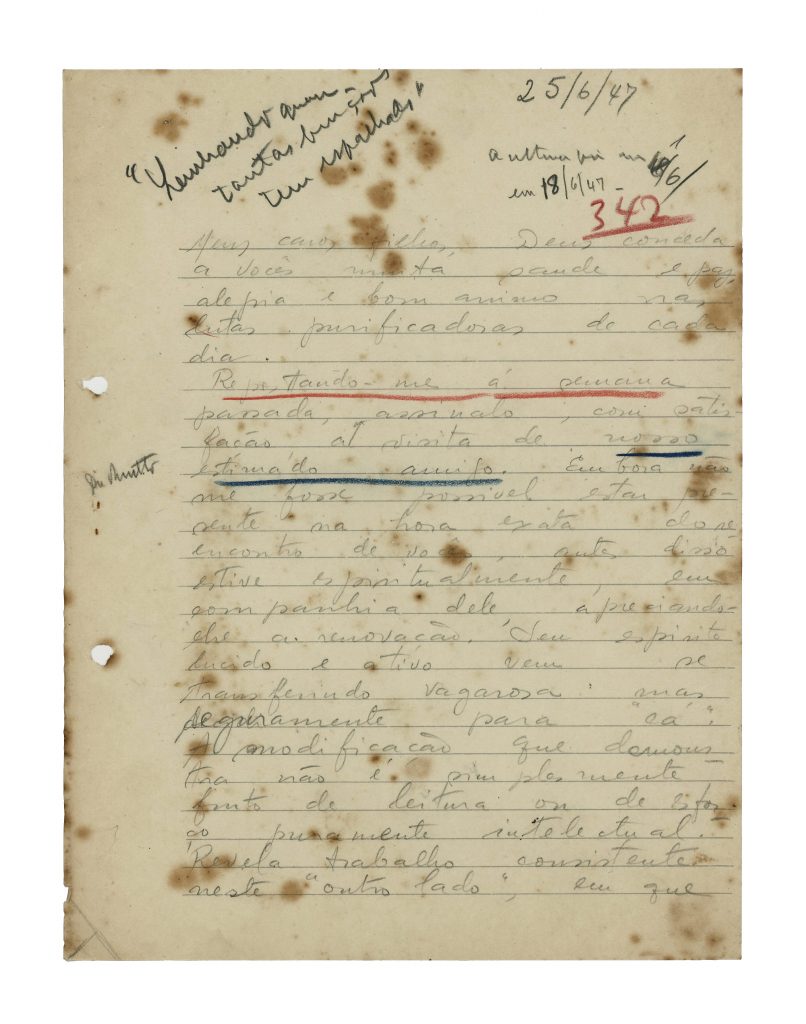 "Lembrando quan-
tas bençãos
tem espalhado"
25/6/47
a ultima foi
em 18/6/47 -
342
Meus caros filhos, Deus conceda
a vocês muita saude e paz,
alegria e bom animo nas
lutas purificadoras de cada
dia.
Reportando-me á semana
passada, assinalo, com satis-
fação a visita de nosso
estimado amigo. Embora não
me fosse possivel estar pre-
sente na hora exata do re
encontro de vocês, antes disso
estive espiritualmente, em
companhia dele apreciando-
lhe a renovação. Seu espirito
lucido e ativo vem se
transferindo vagarosa mas
seguramente para "cá".
A modificação que demons
tra não é simplesmente
fruto de leitura ou de esfor-
ço puramente intelectual.
Revela trabalho consistente
neste "outro lado", em que